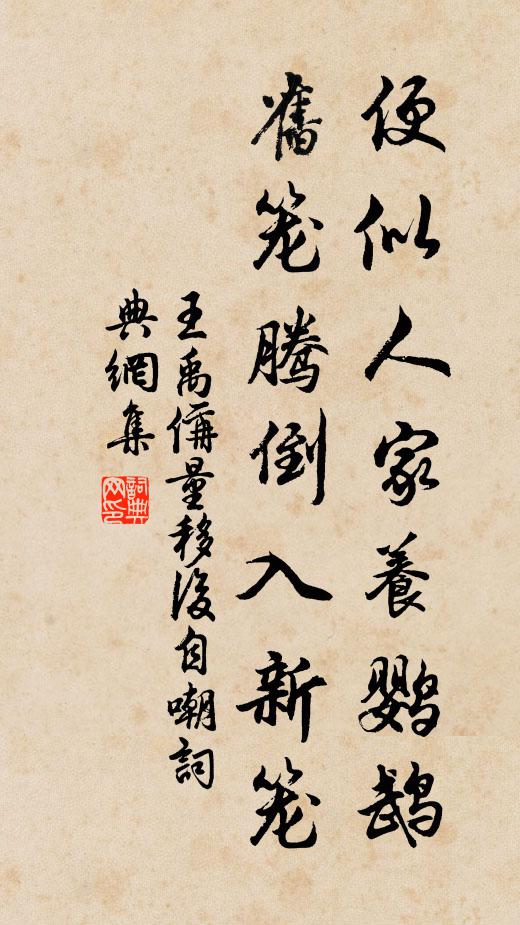 便似人家養鸚鵡
舊笼騰倒入新笼
王禹偁量移後自嘲詞
典網集
詞典网印